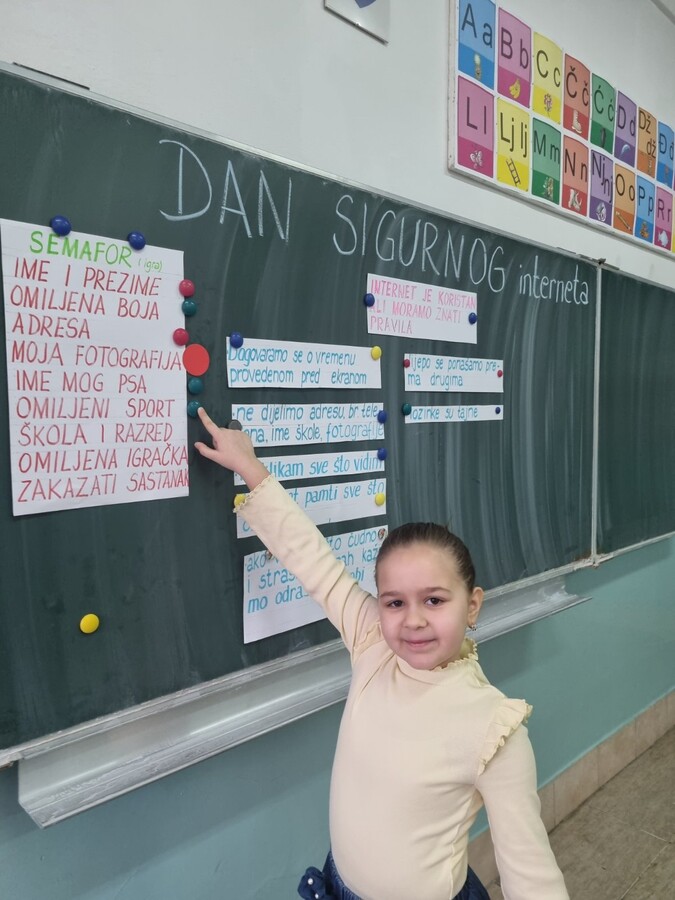 Aa Bb Cc Čč Ćć Dd Dž dž Đđ
Ll Lj lj Mm Nn Nj nj Oo Pp Rr
DAN SIGURNOG interneta
SEMAFOR (igra)
IME I PREZIME
OMILJENA BOJA
ADRESA
MOJA FOTOGRAFIJA
IME MOG PSA
OMILJENI SPORT
ŠKOLA I RAZRED
OMILJENA IGRAČKA
ZAKAZATI SASTANAK
INTERNET JE KORISTAN
ALI MORAMO ZNATI
PRAVILA
Dogovaramo se o vremenu
provedenom pred ekranom
ne dijelimo adresu, br. tele
ona, ime škole, fotografije
likam sve što vidim
pamti sve što
ako čudno
i kaž
mo odras
lijepo se ponašamo pre-
ma drugima
lozinke su tajne